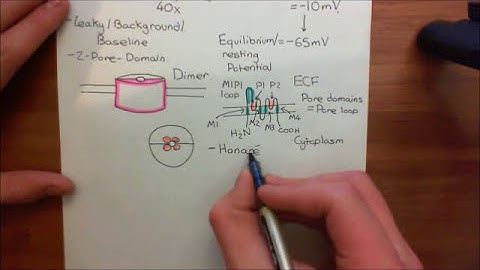 40x
= -10mV
- Leaky/Background/
Baseline
- 2-Pore-Domain
Dimer
Equilibrium/ = -65mV
resting
Potential
M1P1
loop
P1 P2
ECF
Pore domains
= Pore loop
M1
M2
M3
M4
H2N
COOH
Cytoplasm
- Hanane